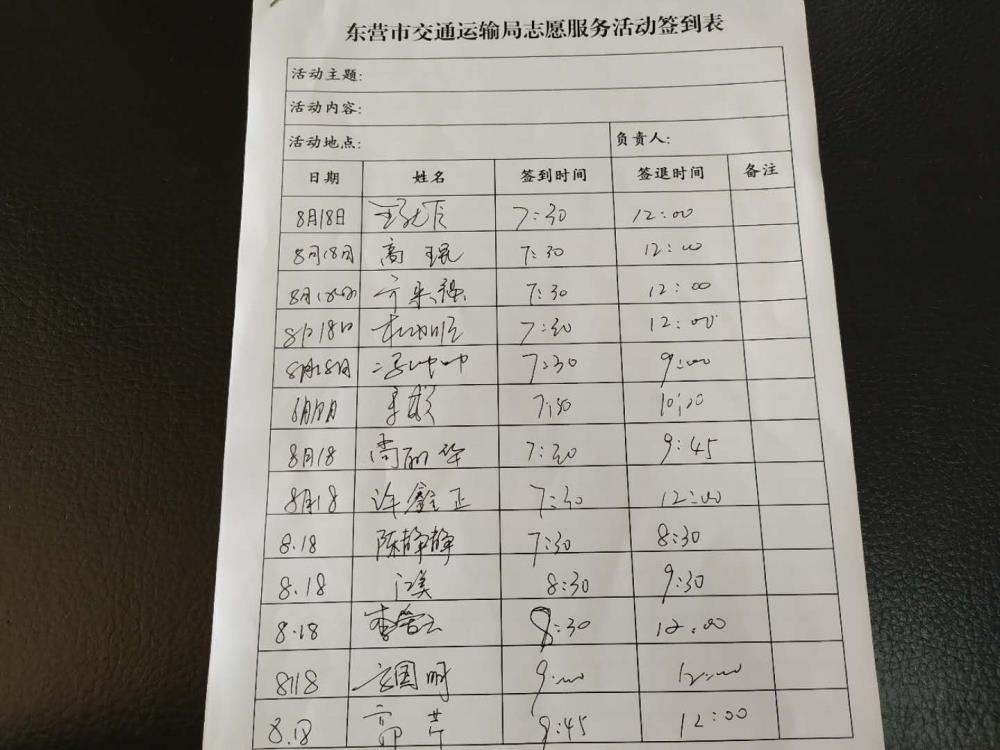 东营市交通运输局志愿服务活动签到表
活动主题:
活动内容:
活动地点: 负责人:
日期 姓名 签到时间 签退时间 备注
8月18日 7:30 12:00
8月18日 高琨 7:30 12:00
8月18日 7:30 12:00
8月18日 7:30 12:00
8月18日 冯坤坤 7:30 9:00
8月18日 7:30 10:20
8月18 尚丽华 7:30 9:45
8月18 许鑫正 7:30 12:00
8.18 陈静静 7:30 8:30
8.18 江美 8:30 9:30
8.18 8:30 12:00
8118 国明 9:00 12:00
8.18 郭芹 9:45 12:00